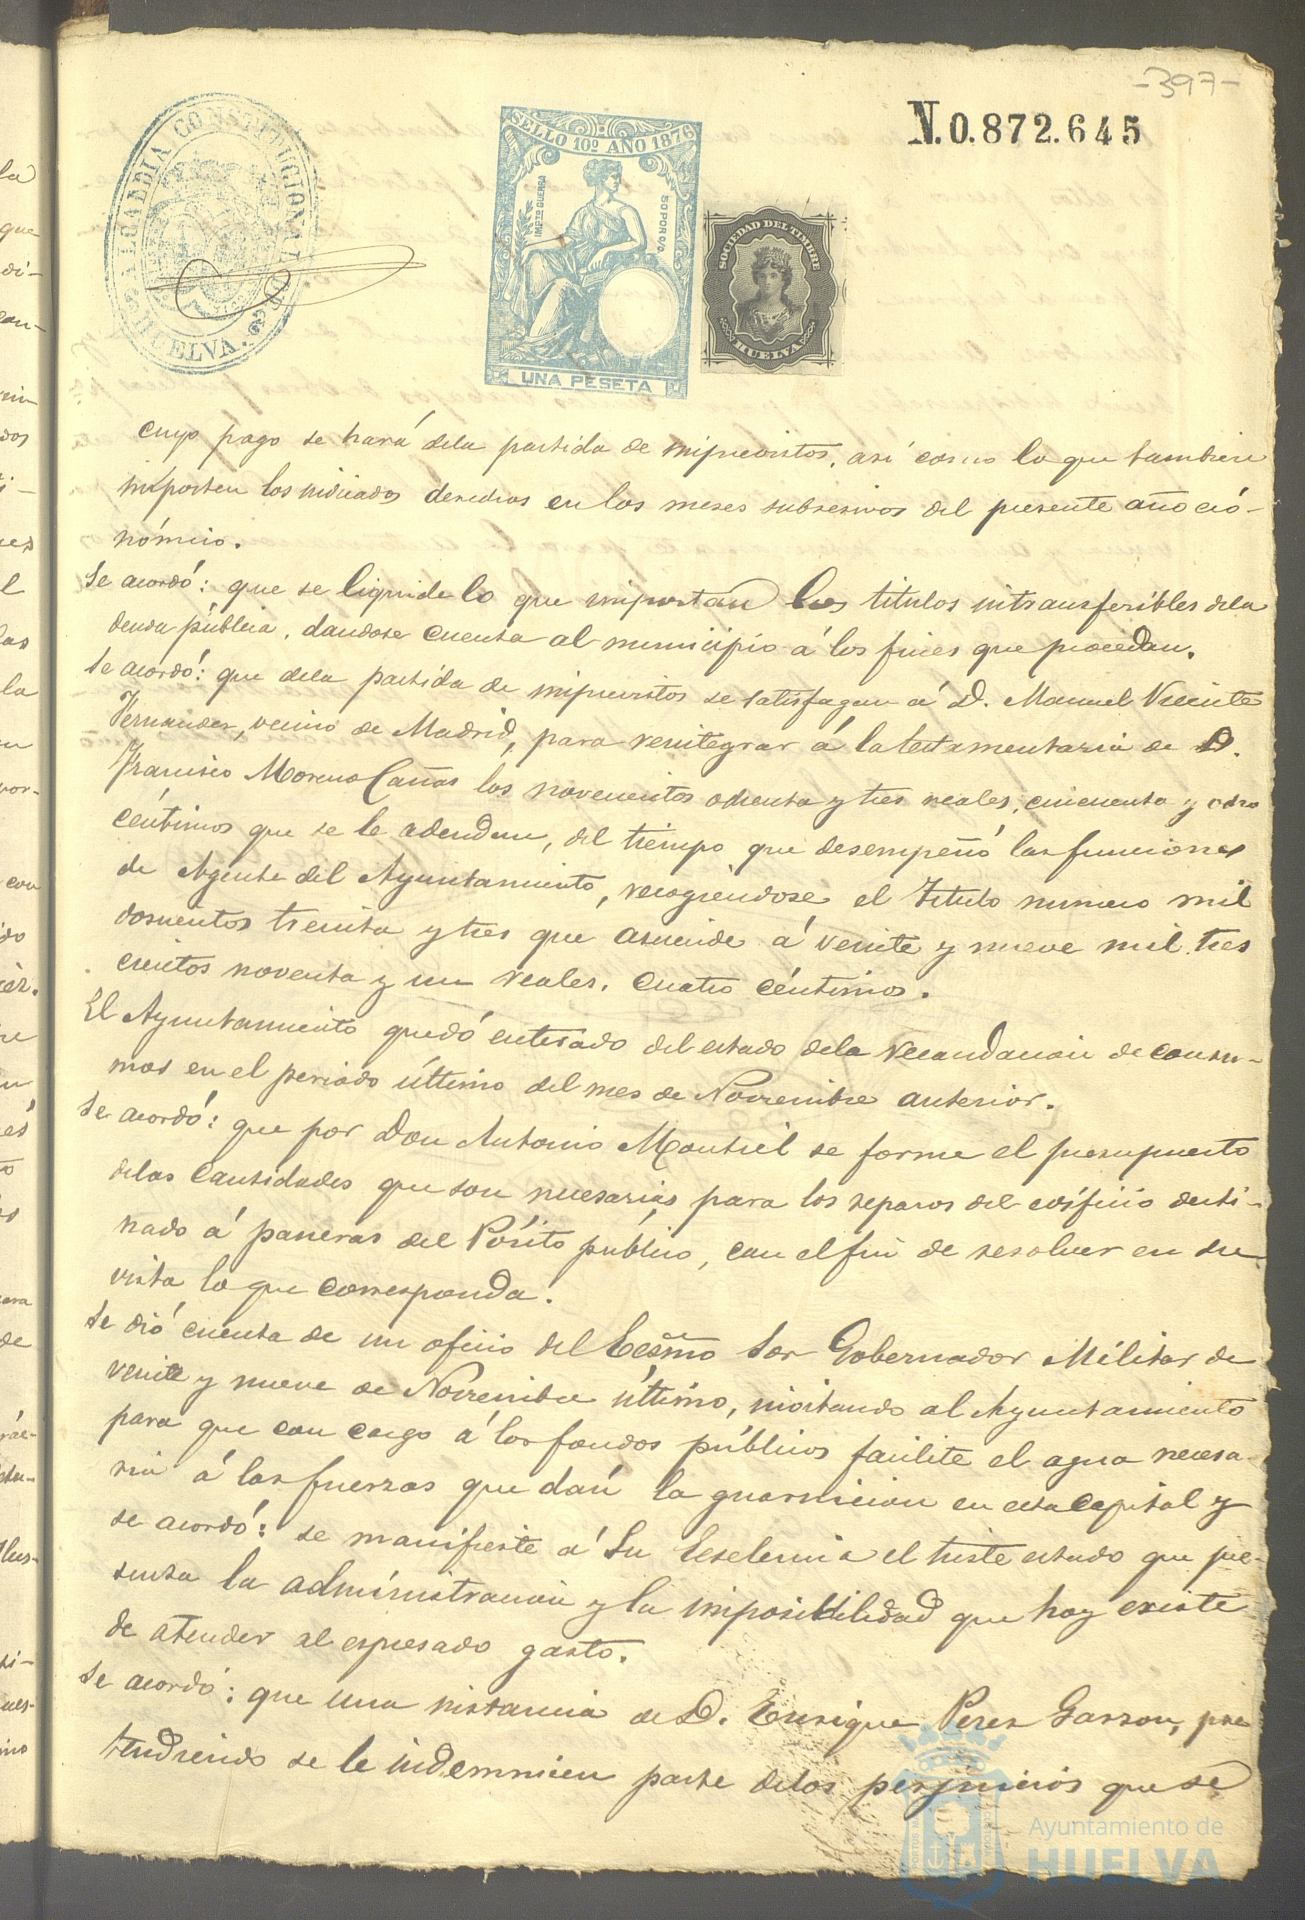 -397-
N.0.872.645
ALCALDIA CONSTITUCIONAL DE HUELVA.
SELLO 10º AÑO 1876
IMPTO GUERRA
50 POR 0/0
UNA PESETA
SOCIEDAD DEL TIMBRE
HUELVA
cuyo pago se hará dela partida de imprevistos, así como lo que tambien
importen los indicados derechos en los meses subsesivos del presente año ecó-
nómico.
Se acordó: que se liquide lo que importan los titulos intransferibles dela
deuda pública, dandose cuenta al municipio á los fines que procedan.
Se acordó: que dela partida de imprevistos se satisfagan á D. Manuel Vicente
Fernandez, vecino de Madrid, para reintegrar á la testamentaria de D.
Francisco Moreno Cañas los novecientos ochenta y tres reales, cincuenta y ocho
céntimos que se le adeudan, del tiempo que desempeñó las funciones
de Agente del Ayuntamiento, recogiendose el Titulo numero mil
doscientos treinta y tres que asciende á veinte y nueve mil tres
cientos noventa y un reales, cuatro céntimos.
El Ayuntamiento quedó enterado del estado dela recaudacion de consu-
mos en el periodo último del mes de Noviembre anterior.
Se acordó: que por Don Antonio Montiel se forme el presupuesto
delas cantidades que son necesarias para los reparos del edificio desti-
nado á paneras del Pósito público, con el fin de resolver en su
vista lo que corresponda.
Se dió cuenta de un oficio del Ecsmo Sor Gobernador Militar de
veinte y nueve de Noviembre último, invitando al Ayuntamiento
para que con cargo á los fondos públicos facilite el agua necesa-
ria á las fuerzas que dan la guarnicion en esta Capital y
se acordó: se manifieste á Su Escelencia el triste estado que pre-
senta la administracion y la imposibilidad que hoy existe
de atender al espresado gasto.
Se acordó: que una instancia de D. Enrique Perez Garzon, pre
tendiendo se le indemnicen parte delos perjuicios que se
Ayuntamiento de
HUELVA